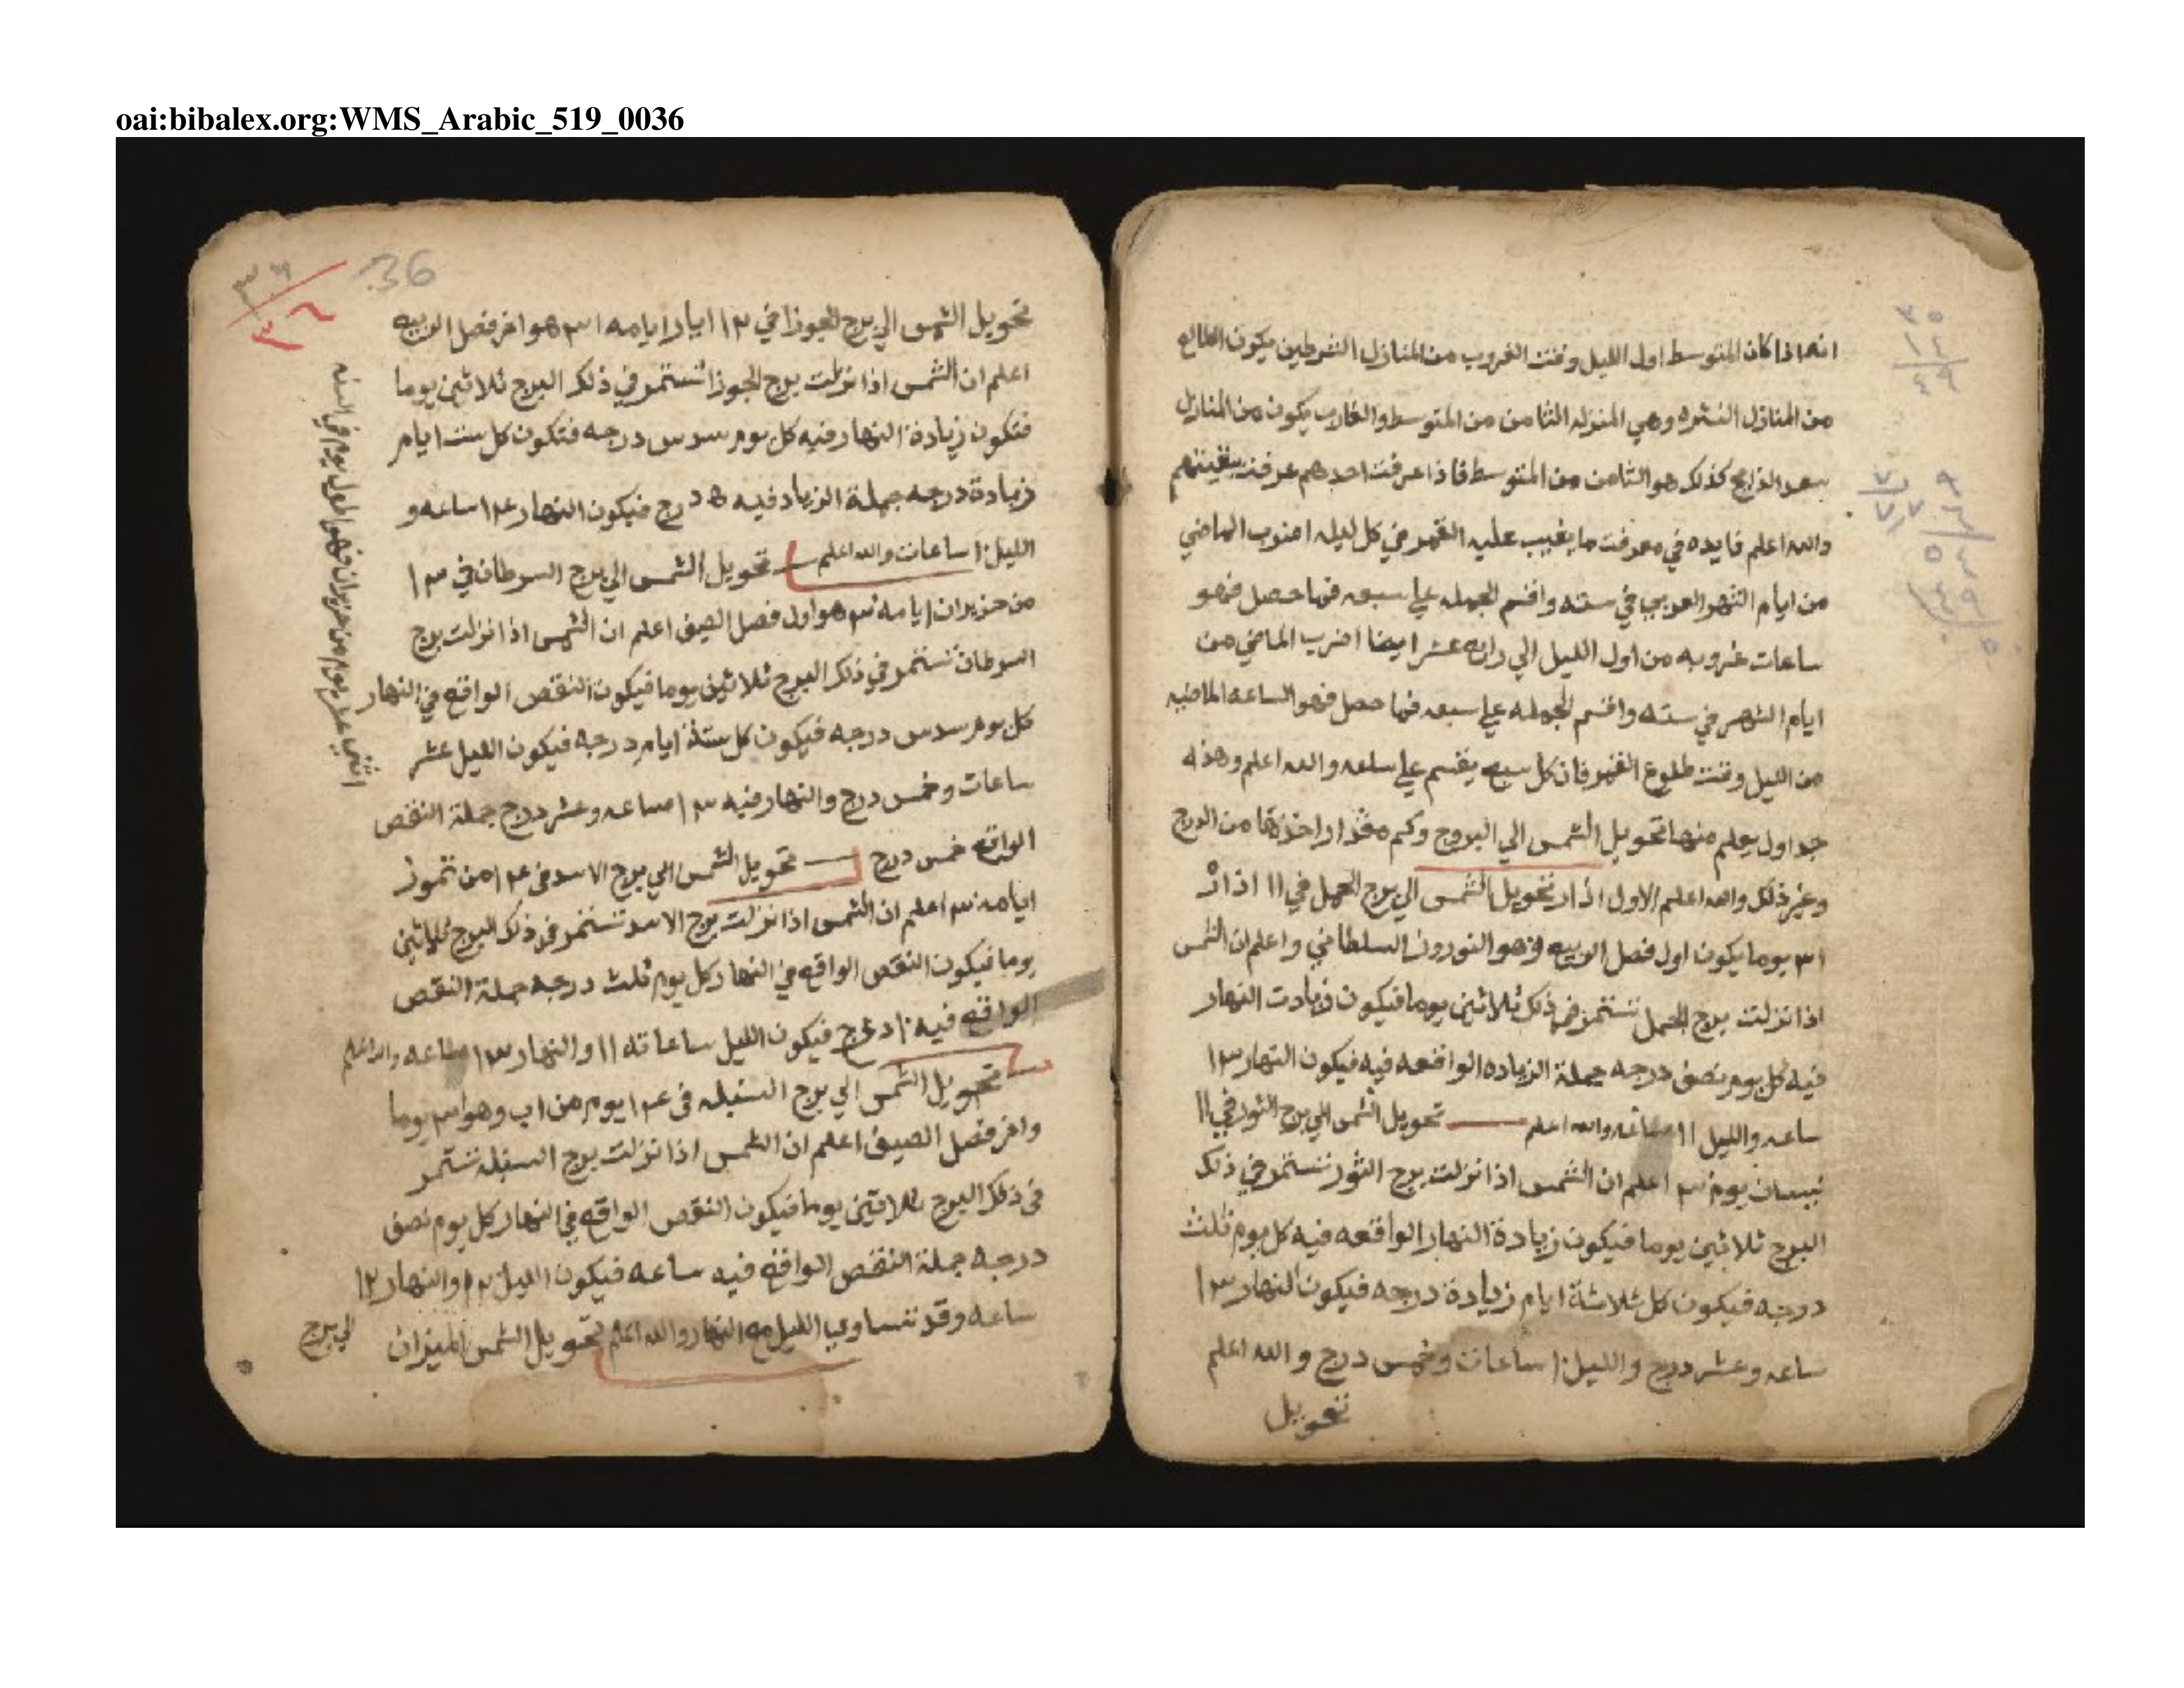 oai:bibalex.org:WMS_Arabic_519_0036
انه اذا كان المتوسط اول الليل وقت الغروب من المنازل الشرطين يكون الطالع
من المنازل النثره وهي المنزله الثامن من المتوسط والغارب يكون من المنازل
سعد الذابح كذلك هو الثامن من المتوسط فاذا عرفت احدهم عرفت بقيتهم
والله اعلم فايده في معرفت ما يغيب عليه القمر في كل ليله اضرب الماضي
من ايام الشهر العربي في سته واقسم الجمله علي سبعه فما حصل فهو
ساعات غروبه من اول الليل الي رابع عشر ايضا اضرب الماضي من
ايام الشهر في سته واقسم الجمله علي سبعه فما حصل فهو الساعه الماضيه
من الليل وقت طلوع القمر فان كل سبع يقسم علي ساعه والله اعلم وهذه
جداول يعلم منها تحويل الشمس الي البروج وكم مقدار اخذها من الدرج
وغير ذلك والله اعلم الاول اذار تحويل الشمس الي برج الحمل في ١١ اذار
٣١ يوما يكون اول فصل الربيع وهو النوروز السلطاني واعلم ان الشمس
اذا نزلت برج الحمل تستمر في ذلك ثلاثين يوما فيكون زيادت النهار
فيه كل يوم نصف درجه جملة الزياده الواقعه فيه فيكون النهار ١٣
ساعه والليل ١١ ساعه والله اعلم تحويل الشمس الي برج الثور في ١١
نيسان يوم ٣٠ اعلم ان الشمس اذا نزلت برج الثور تستمر في ذلك
البرج ثلاثين يوما فيكون زيادة النهار الواقعه فيه كل يوم ثلث
درجه فيكون كل ثلاثة ايام زيادة درجه فيكون النهار ١٣
ساعه وعشر درج والليل ١٠ ساعات وخمس درج والله اعلم
تحويل
36
٣٦
تحويل الشمس الي برج الجوزا في ١٢ ايار ايامه ٣١ هو اخر فصل الربيع
اعلم ان الشمس اذا نزلت برج الجوزا تستمر في ذلك البرج ثلاثين يوما
فتكون زيادة النهار فيه كل يوم سدس درجه فتكون كل ست ايام
زيادة درجه جملة الزياد فيه ٥ درج فيكون النهار ١٤ ساعه و
الليل ١٠ ساعات والله اعلم تحويل الشمس الي برج السرطان في ١٣
من حزيران ايامه ٣٠ هو اول فصل الصيف اعلم ان الشمس اذا نزلت برج
السرطان تستمر في ذلك البرج ثلاثين يوما فيكون النقص الواقع في النهار
كل يوم سدس درجه فيكون كل ستة ايام درجه فيكون الليل عشر
ساعات وخمس درج والنهار فيه ١٣ ساعه وعشر درج جملة النقص
الواقع خمس درج تحويل الشمس الي برج الاسد في ١٤ من تموز
ايامه ٣١ اعلم ان الشمس اذا نزلت برج الاسد تستمر في ذلك البرج ثلاثين
يوما فيكون النقص الواقع في النهار كل يوم ثلث درجه جملة النقص
الواقع فيه ١٠ درج فيكون الليل ساعاته ١١ والنهار ١٣ ساعه والله اعلم
تحويل الشمس الي برج السنبله في ١٤ يوم من اب وهو ٣١ يوما
واخر فصل الصيف اعلم ان الشمس اذا نزلت برج السنبله تستمر
في ذلك البرج ثلاثين يوما فيكون النقص الواقع في النهار كل يوم نصف
درجه جملة النقص الواقع فيه ساعه فيكون الليل ١٢ والنهار ١٢
ساعه وقد تساوي الليل مع النهار والله اعلم تحويل الشمس الميزان
الي برج
اثني عشر يوم من حزيران فهو اطول يوم في السنه